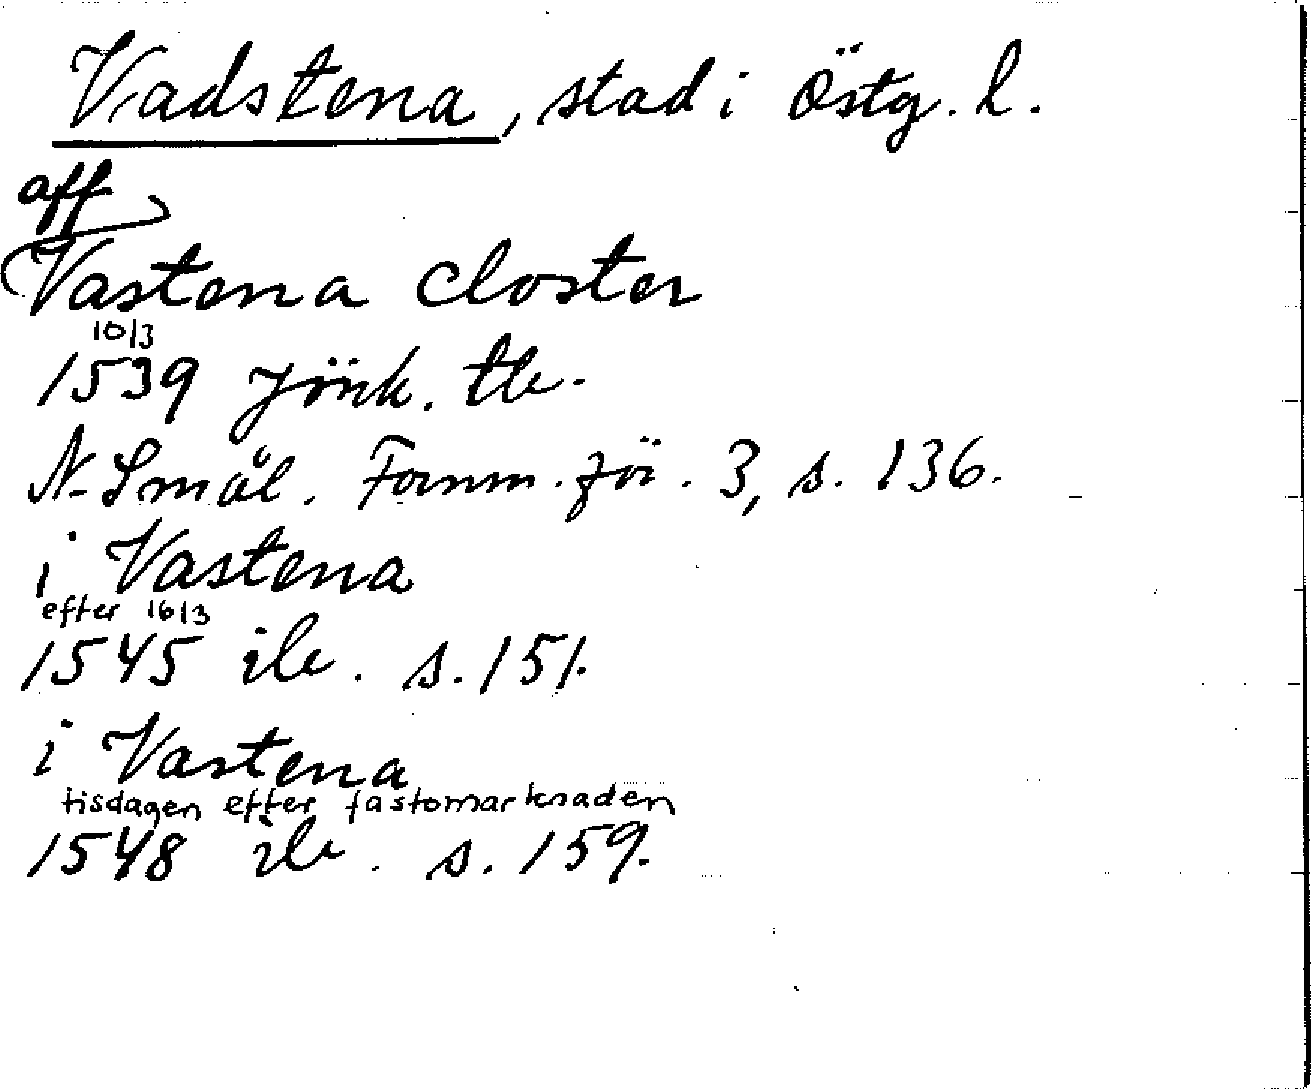 Vadstena, stad i Östg. l.
aff
Vastena closter
10/3
1539 Jönk. tb.
N. Smål. Fornm. för. 3, s. 136.
i Vastena
efter 16/3
1545 ib. s. 151.
i Vastena
tisdagen efter fastomarknaden
1548 ib. s. 159.